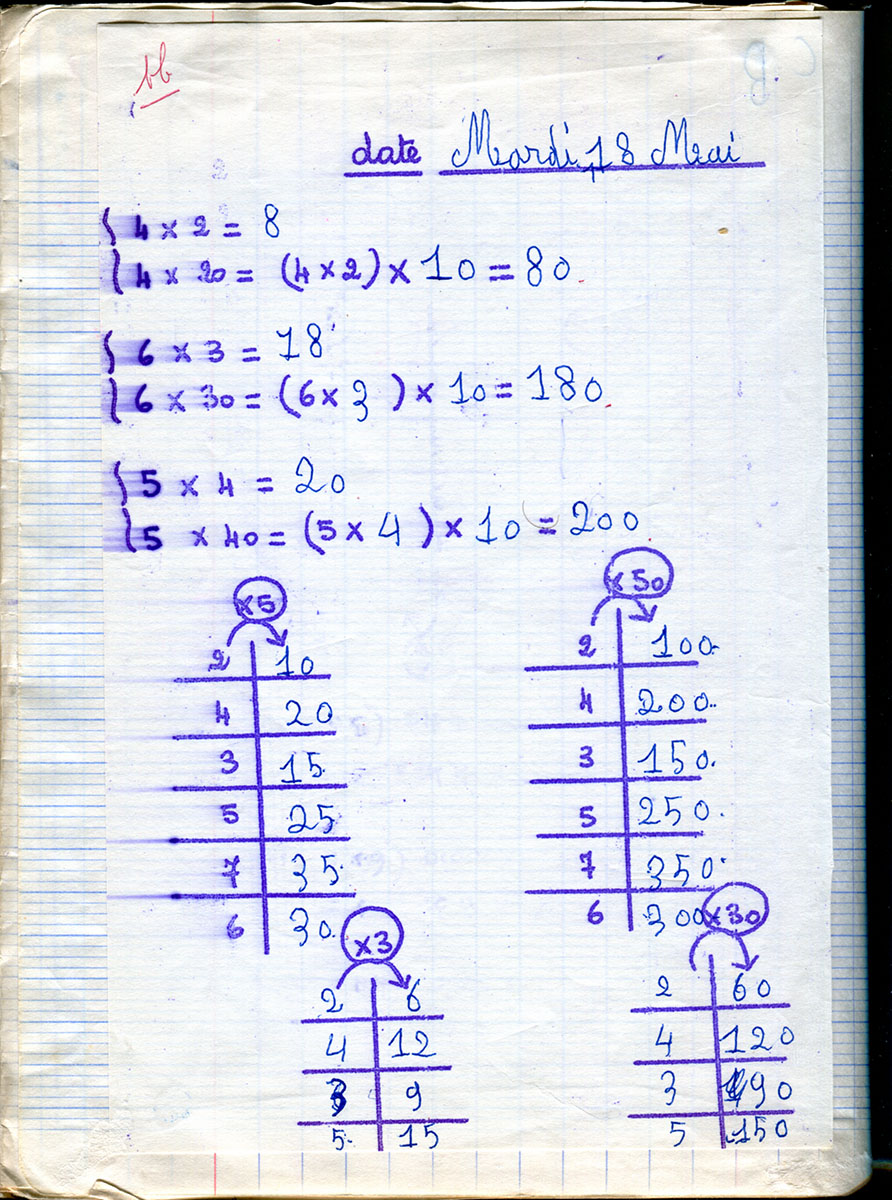 bb
date Mardi 18 Mai
4 × 2 = 8
4 × 20 = (4 × 2) × 10 = 80
6 × 3 = 18
6 × 30 = (6 × 3) × 10 = 180
5 × 4 = 20
5 × 40 = (5 × 4) × 10 = 200
×5
2 10
4 20
3 15
5 25
7 35
6 30
×50
2 100
4 200
3 150
5 250
7 350
6 300
×3
2 6
4 12
3 9
5 15
×30
2 60
4 120
3 90
5 150